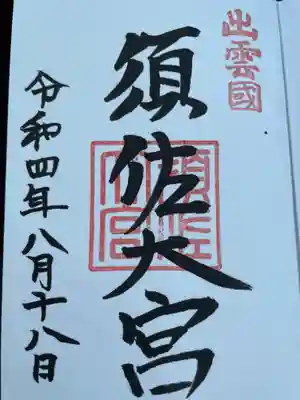 出雲國
須佐大宮
須佐大宮
令和四年八月十八日